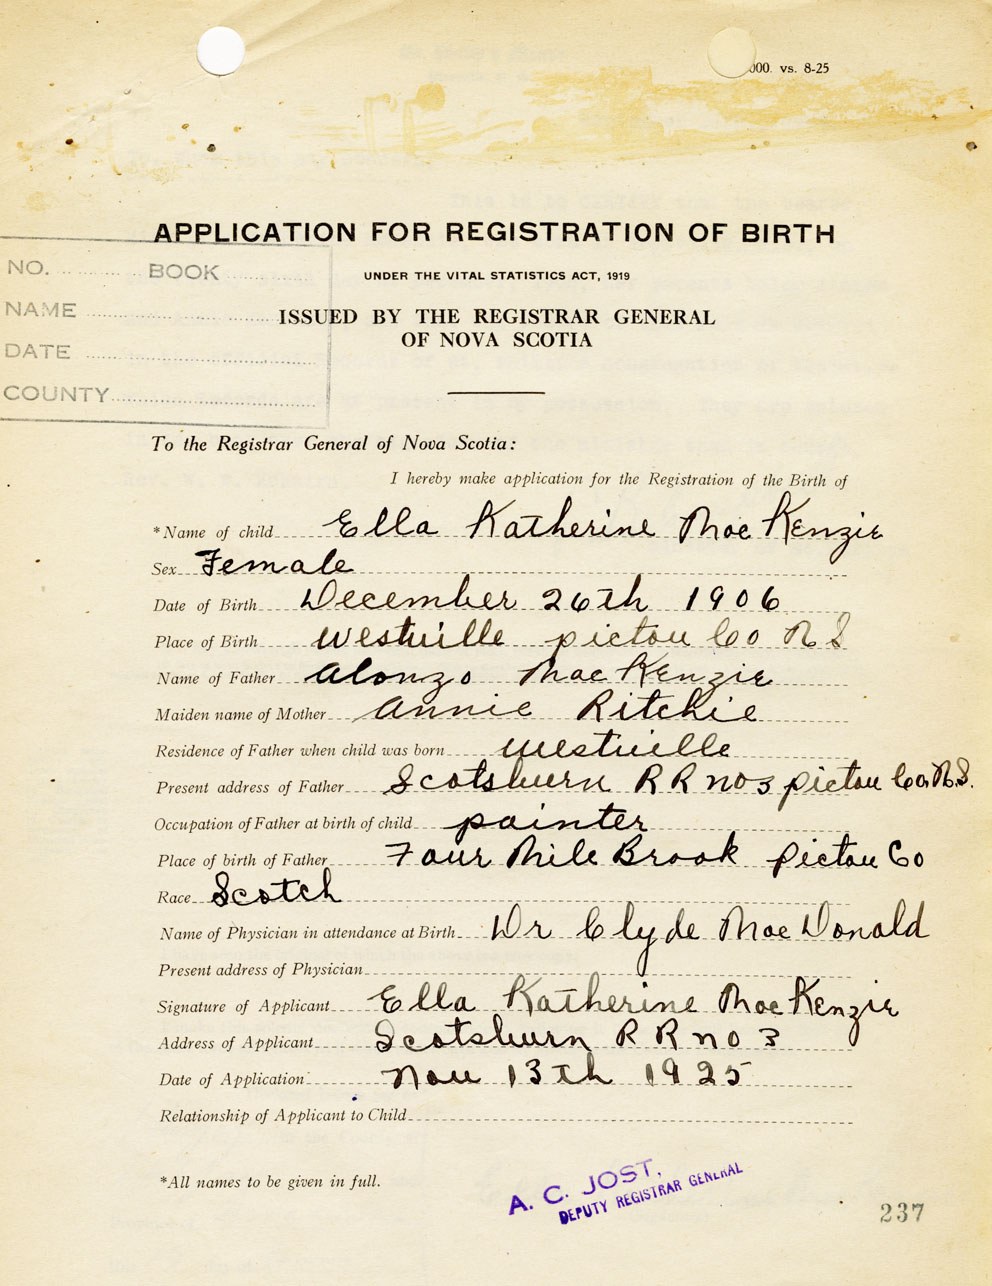 000. vs. 8-25
APPLICATION FOR REGISTRATION OF BIRTH
UNDER THE VITAL STATISTICS ACT, 1919
ISSUED BY THE REGISTRAR GENERAL
OF NOVA SCOTIA
NO. BOOK
NAME
DATE
COUNTY
To the Registrar General of Nova Scotia:
I hereby make application for the Registration of the Birth of
*Name of child Ella Katherine MacKenzie
Sex Female
Date of Birth December 26th 1906
Place of Birth Westville pictou Co N S
Name of Father Alonzo MacKenzie
Maiden name of Mother Annie Ritchie
Residence of Father when child was born Westville
Present address of Father Scotsburn R R no 3 pictou Co. N.S.
Occupation of Father at birth of child painter
Place of birth of Father Four Mile Brook Pictou Co
Race Scotch
Name of Physician in attendance at Birth Dr Clyde MacDonald
Present address of Physician
Signature of Applicant Ella Katherine MacKenzie
Address of Applicant Scotsburn R R no 3
Date of Application Nov 13th 1925
Relationship of Applicant to Child
*All names to be given in full.
A. C. JOST,
DEPUTY REGISTRAR GENERAL
237